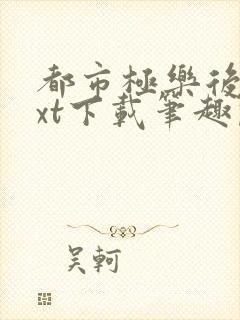 都市極樂後
xt下載筆趣
吴軻